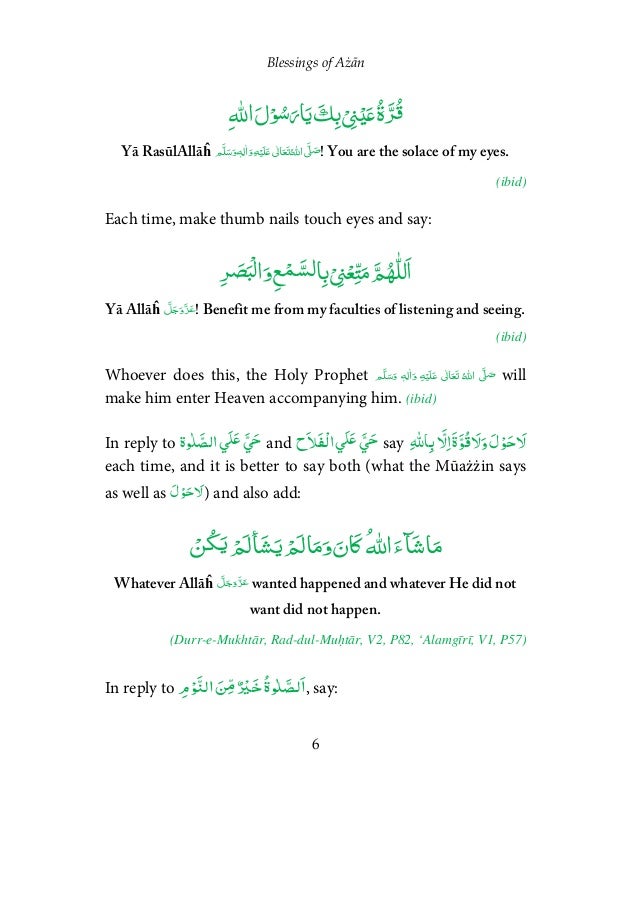 Blessings of Ażān
قُرَّةُ عَيْنِيْ بِكَ يَا رَسُوْلَ اللهِ
Yā RasūlAllāĥ صَلَّى اللهُ تَعَالٰى عَلَيْهِ وَاٰلِهٖ وَسَلَّم! You are the solace of my eyes.
(ibid)
Each time, make thumb nails touch eyes and say:
اَللّٰهُمَّ مَتِّعْنِيْ بِالسَّمْعِ وَالْبَصَرِ
Yā Allāĥ عَزَّوَجَلَّ! Benefit me from my faculties of listening and seeing.
(ibid)
Whoever does this, the Holy Prophet صَلَّى اللهُ تَعَالٰى عَلَيْهِ وَاٰلِهٖ وَسَلَّم will
make him enter Heaven accompanying him. (ibid)
In reply to حَيَّ عَلَي الصَّلٰوة and حَيَّ عَلَي الْفَلَاح say لَاحَوْلَ وَلَاقُوَّةَ اِلَّا بِاللهِ
each time, and it is better to say both (what the Mūażżin says
as well as لَاحَوْلَ) and also add:
مَاشَآءَ اللهُ كَانَ وَمَالَمْ يَشَأْلَمْ يَكُنْ
Whatever Allāĥ عَزَّوَجَلَّ wanted happened and whatever He did not
want did not happen.
(Durr-e-Mukhtār, Rad-dul-Muḥtār, V2, P82, ‘Alamgīrī, V1, P57)
In reply to اَلصَّلٰوةُ خَيْرٌ مِّنَ النَّوْمِ, say:
6